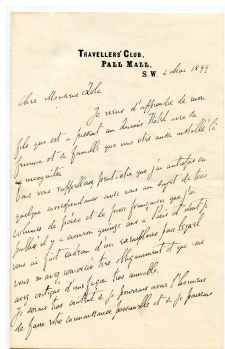 TRAVELLERS' CLUB,
PALL MALL,
S.W. 2 Mai 1899
Cher Monsieur Zola
Je viens d'apprendre de mon
fils qui est à présent au Queens Hotel avec sa
femme et sa famille que vous êtes aussi installé là
incognito.
Vous vous rappellerez peut-être que j'ai autrefois eu
quelque correspondance avec vous au sujet de trois
volumes de poésie et de prose françaises que j'ai
publiés il y a environ quinze ans à Paris et dont je
vous ai fait cadeau d'un exemplaire pour lequel
vous m'avez remercié très obligeamment et que vous
avez critiqué d'une façon très aimable.
Je serais très content si je pouvais avoir l'honneur
de faire votre connaissance personnelle et si je pouvais